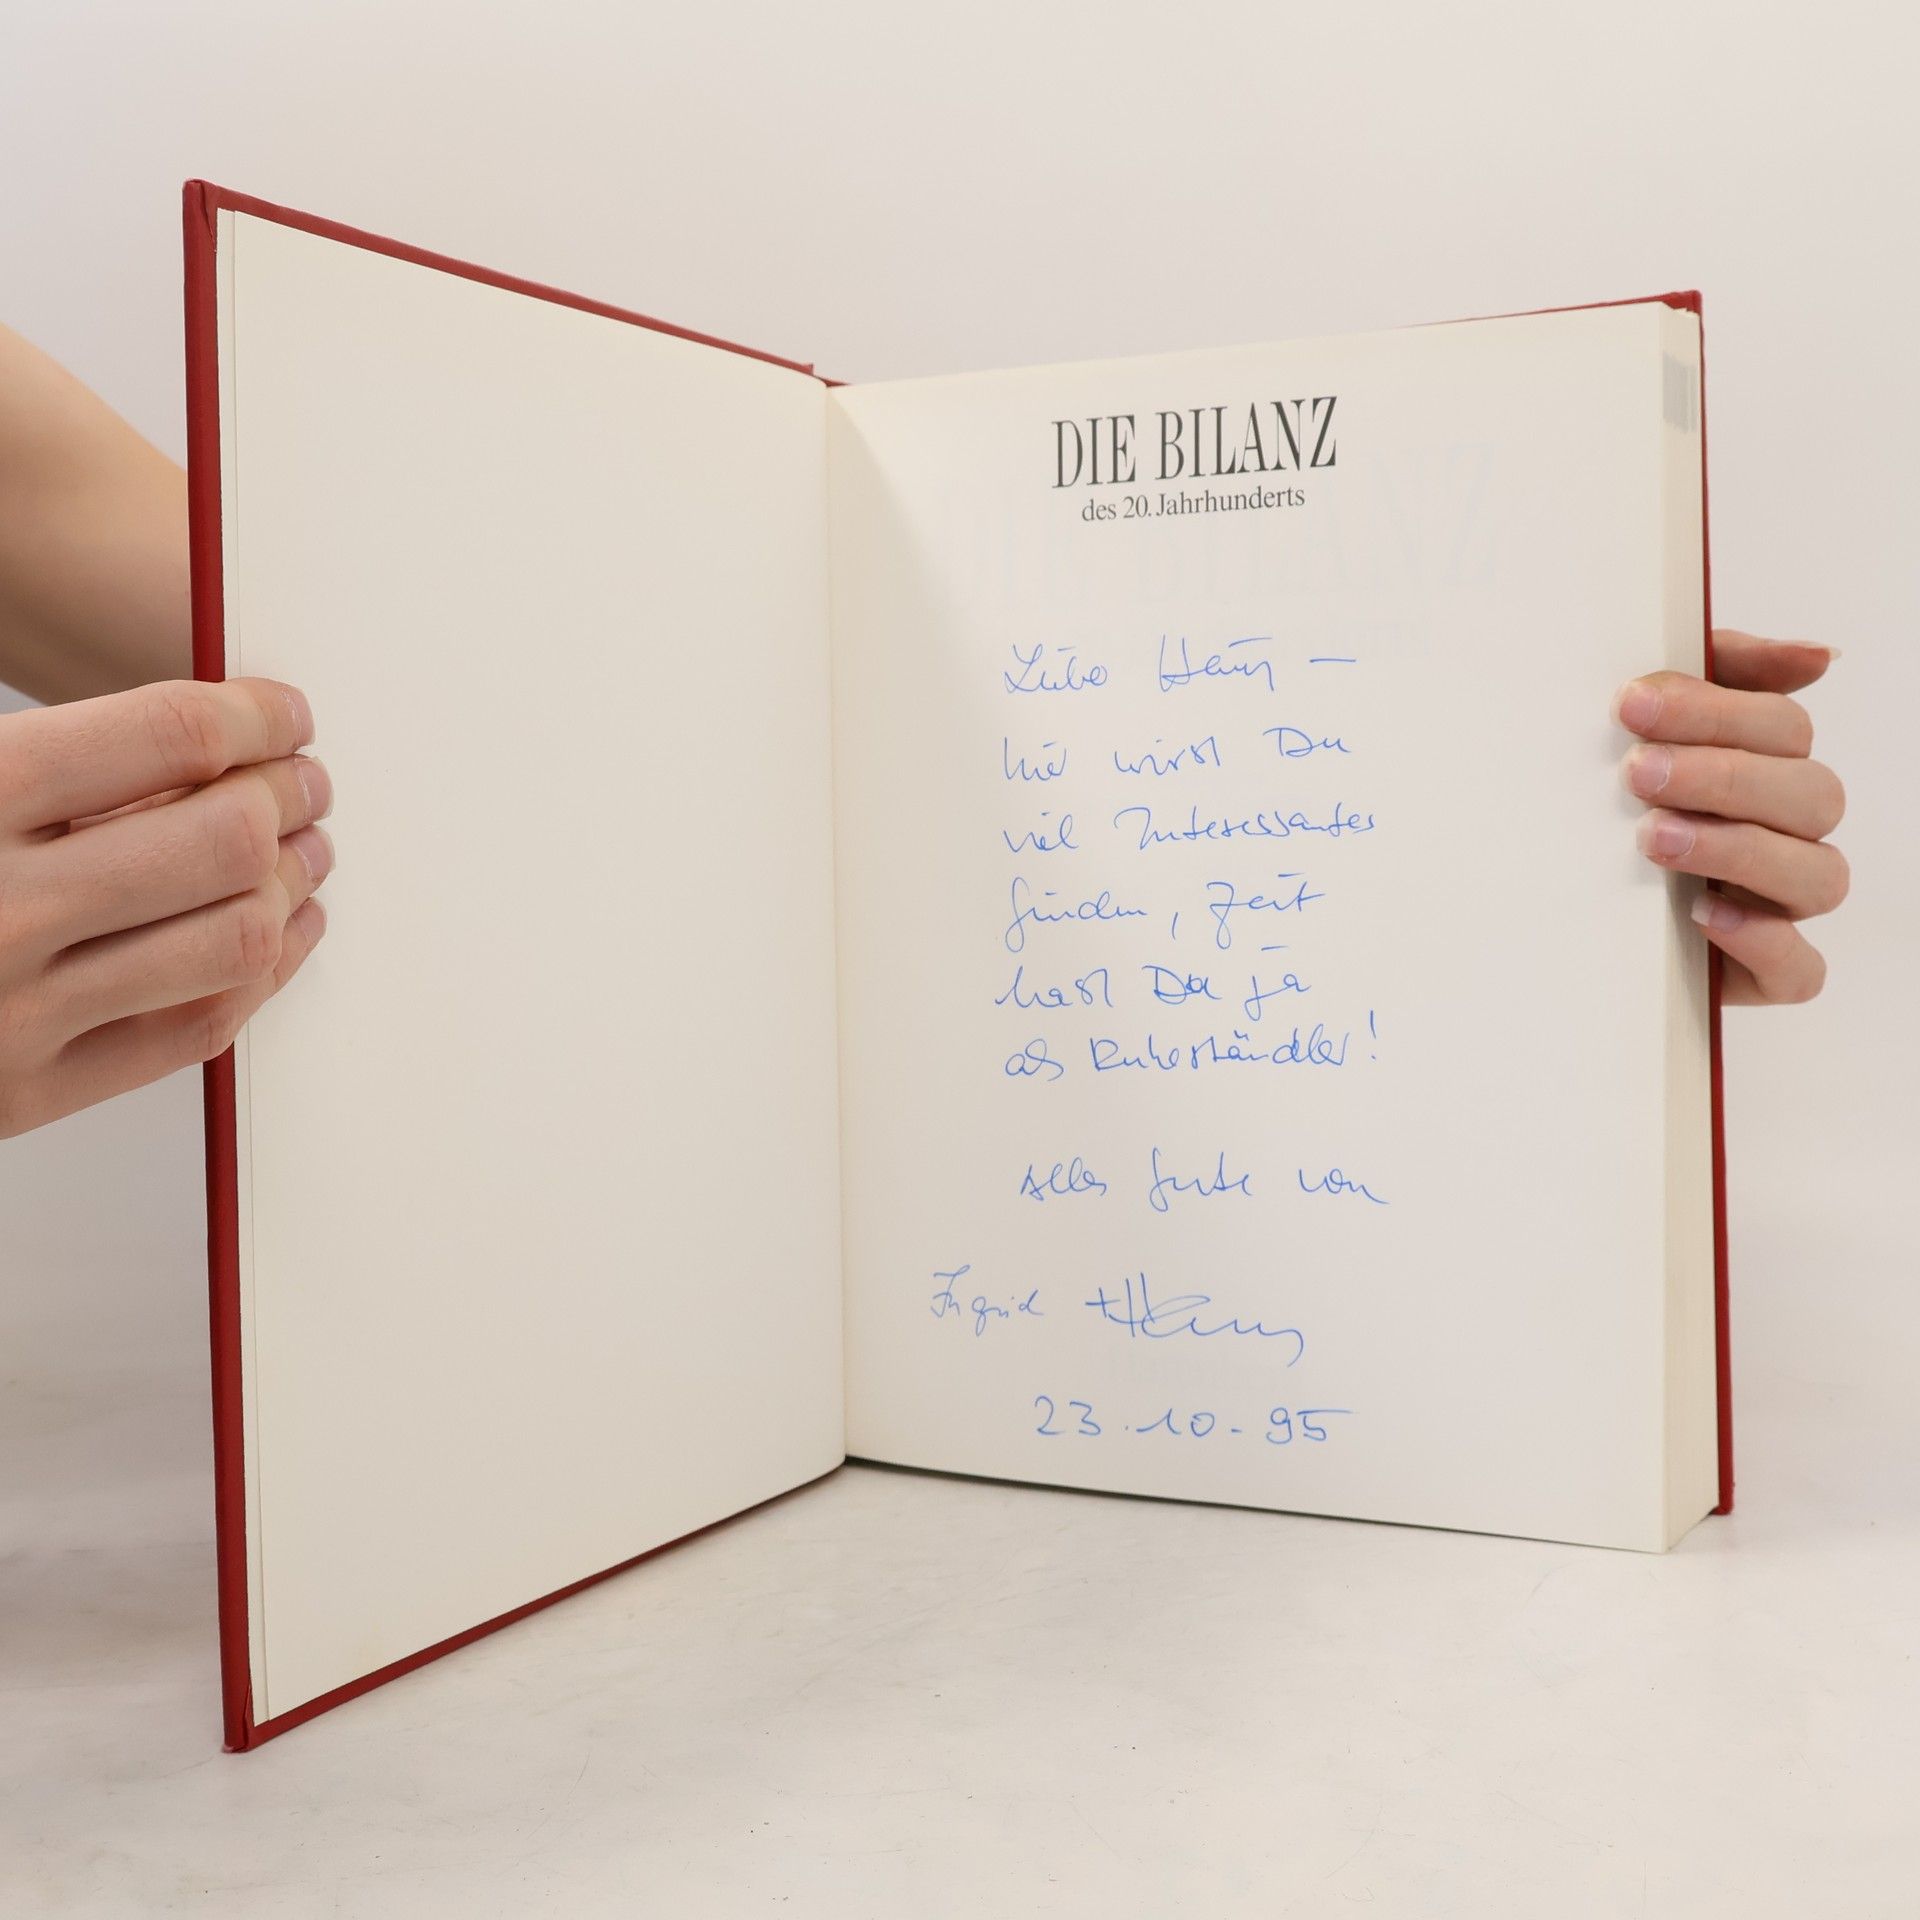 DIE BILANZ
des 20. Jahrhunderts
Lieber Heinz –
hier wirst Du
viel Interessantes
finden, Zeit
hast Du ja
als Ruheständler!
Alles Gute von
Ingrid +
23.10.95